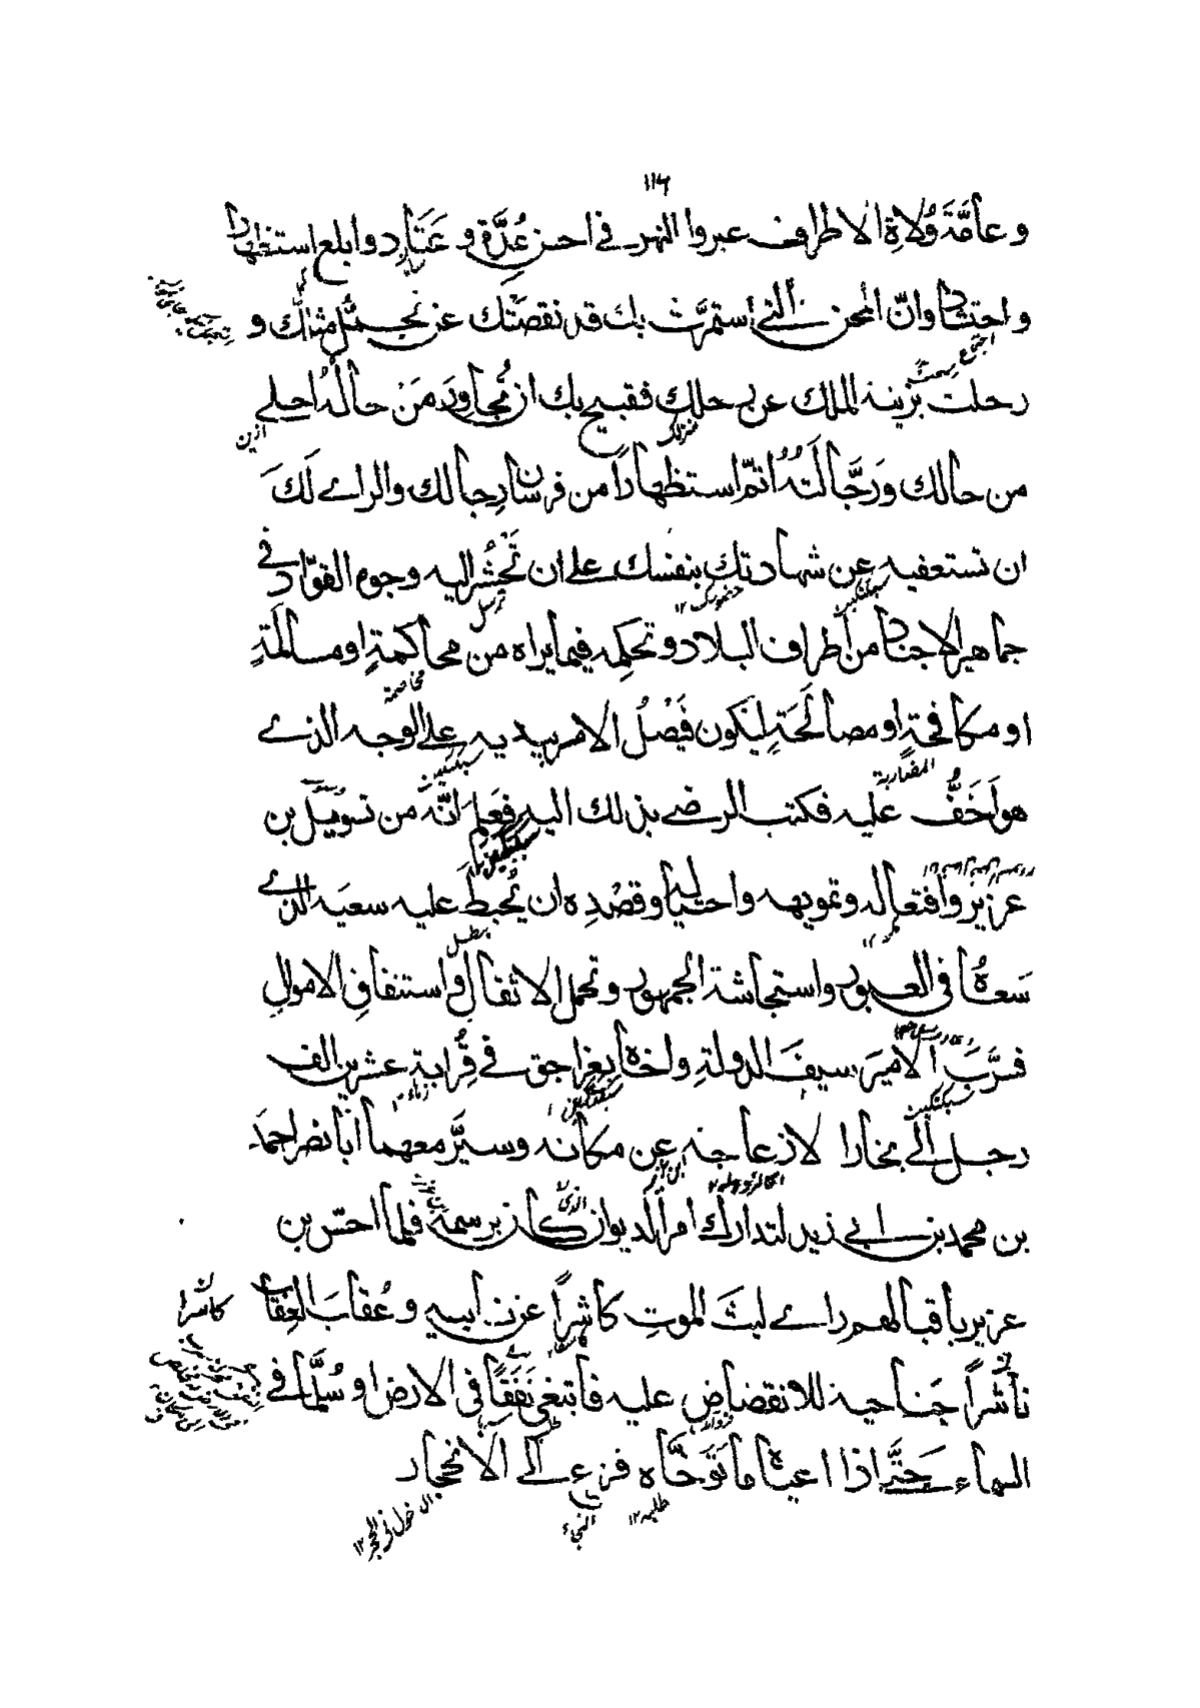 ١١٦
وعامَّةَ وُلاةِ الاطراف عبروا النهر في احسن عُدَّةٍ و عَتَادٍ وابلغ استظهار
واحتشاد وانّ المحن التي استمرَّت بك قد نقصَتْك عن تجمُّل مثلك و
رحلت بزينة الملك عن حلتك فقبيح بك ان تُجاور مَنْ حالُه احلى
من حالك وَرَجَّالَتُهُ اتمّ استظهاراً من فرسان رجالك والراے لَكَ
ان تستعفيه عن شهادتك بنفسك على ان تَحْشُر اليه وجوه القوّاد في
جماهير الاجناد من أطراف البلاد وتحكمه فيما يراه من محاكمةٍ او مسالمةٍ
او مكافحةٍ او مصالَحَةٍ ليكون فَيْصَلُ الامر بيديه على الوجه الذے
هو اَخَفُّ عليه فكتب الرضي بذلك اليه فعَلِم انَّه من تسويل بن
عزيز وافتعاله وتمويهه واحتياله وقصْدِه ان يُحبطَ عليه سعيَه الذے
سَعاهُ في العبور واستجاشة الجمهور وتحمل الاثقال واستنفاقِ الاموالِ
فسَرَّبَ الاميرَ سيفَ الدولةِ واخاه بغراجق في قُرابةِ عشرين الف
رجل الى بخارا لازعاجه عن مكانه وسيَّر معهما أبا نصر احمدَ
بن محمد بن ابي زيد لتدارك امر الديوان كان برسمه فلما احسّ بن
عزيز باقبالهم راے ليثَ الموتِ كاشِراً عن نابيه وعُقابَ العِقاب
ناشراً جَناحيه للانقضاض عليه فابتغى نَفَقاً في الارض او سُلَّماً في
السماء حتَّى اذا اعياه ما تَوَخَّاه فزع الى الانجحار
اجتمع
منزلك
ازين
حضورك ١٢
سبكتكين
ترسل
مخاصمة
سبكتكين
المضاربة
سبكتكين
يبطل
سبكتكين
سبكتكين
الذي
كاشرا
طلبه ١٢
التجىء
الدخول في الجحر ١٢